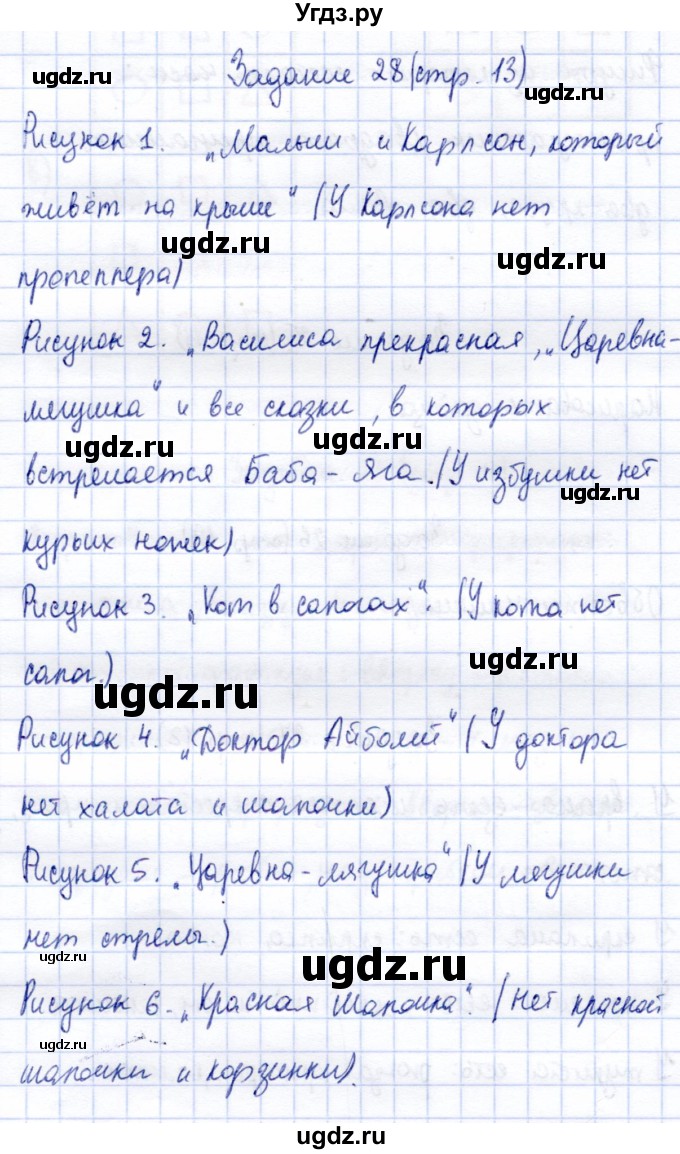 Угдз.ру
Задание 28 (стр. 13)
ugdz.ru
ugdz.ru
Рисунок 1. „Малыш и Карлсон, который
живёт на крыше" (У Карлсона нет
ugdz.ru
ugdz.ru
пропеллера)
Рисунок 2. „Василиса прекрасная, „Царевна-
лягушка" и все сказки, в которых
ugdz.ru
ugdz.ru
встречается Баба-Яга. (У избушки нет
ugdz.ru
курьих ножек)
Рисунок 3. „Кот в сапогах". (У кота нет
ugdz.ru
сапог.)
ugdz.ru
Рисунок 4. „Доктор Айболит" (У доктора
нет халата и шапочки)
Рисунок 5. „Царевна-лягушка" (У лягушки
нет стрелы.)
ugdz.ru
ugdz.ru
Рисунок 6. „Красная Шапочка". (Нет красной
шапочки и корзинки).
ugdz.ru
ugdz.ru
ugdz.ru